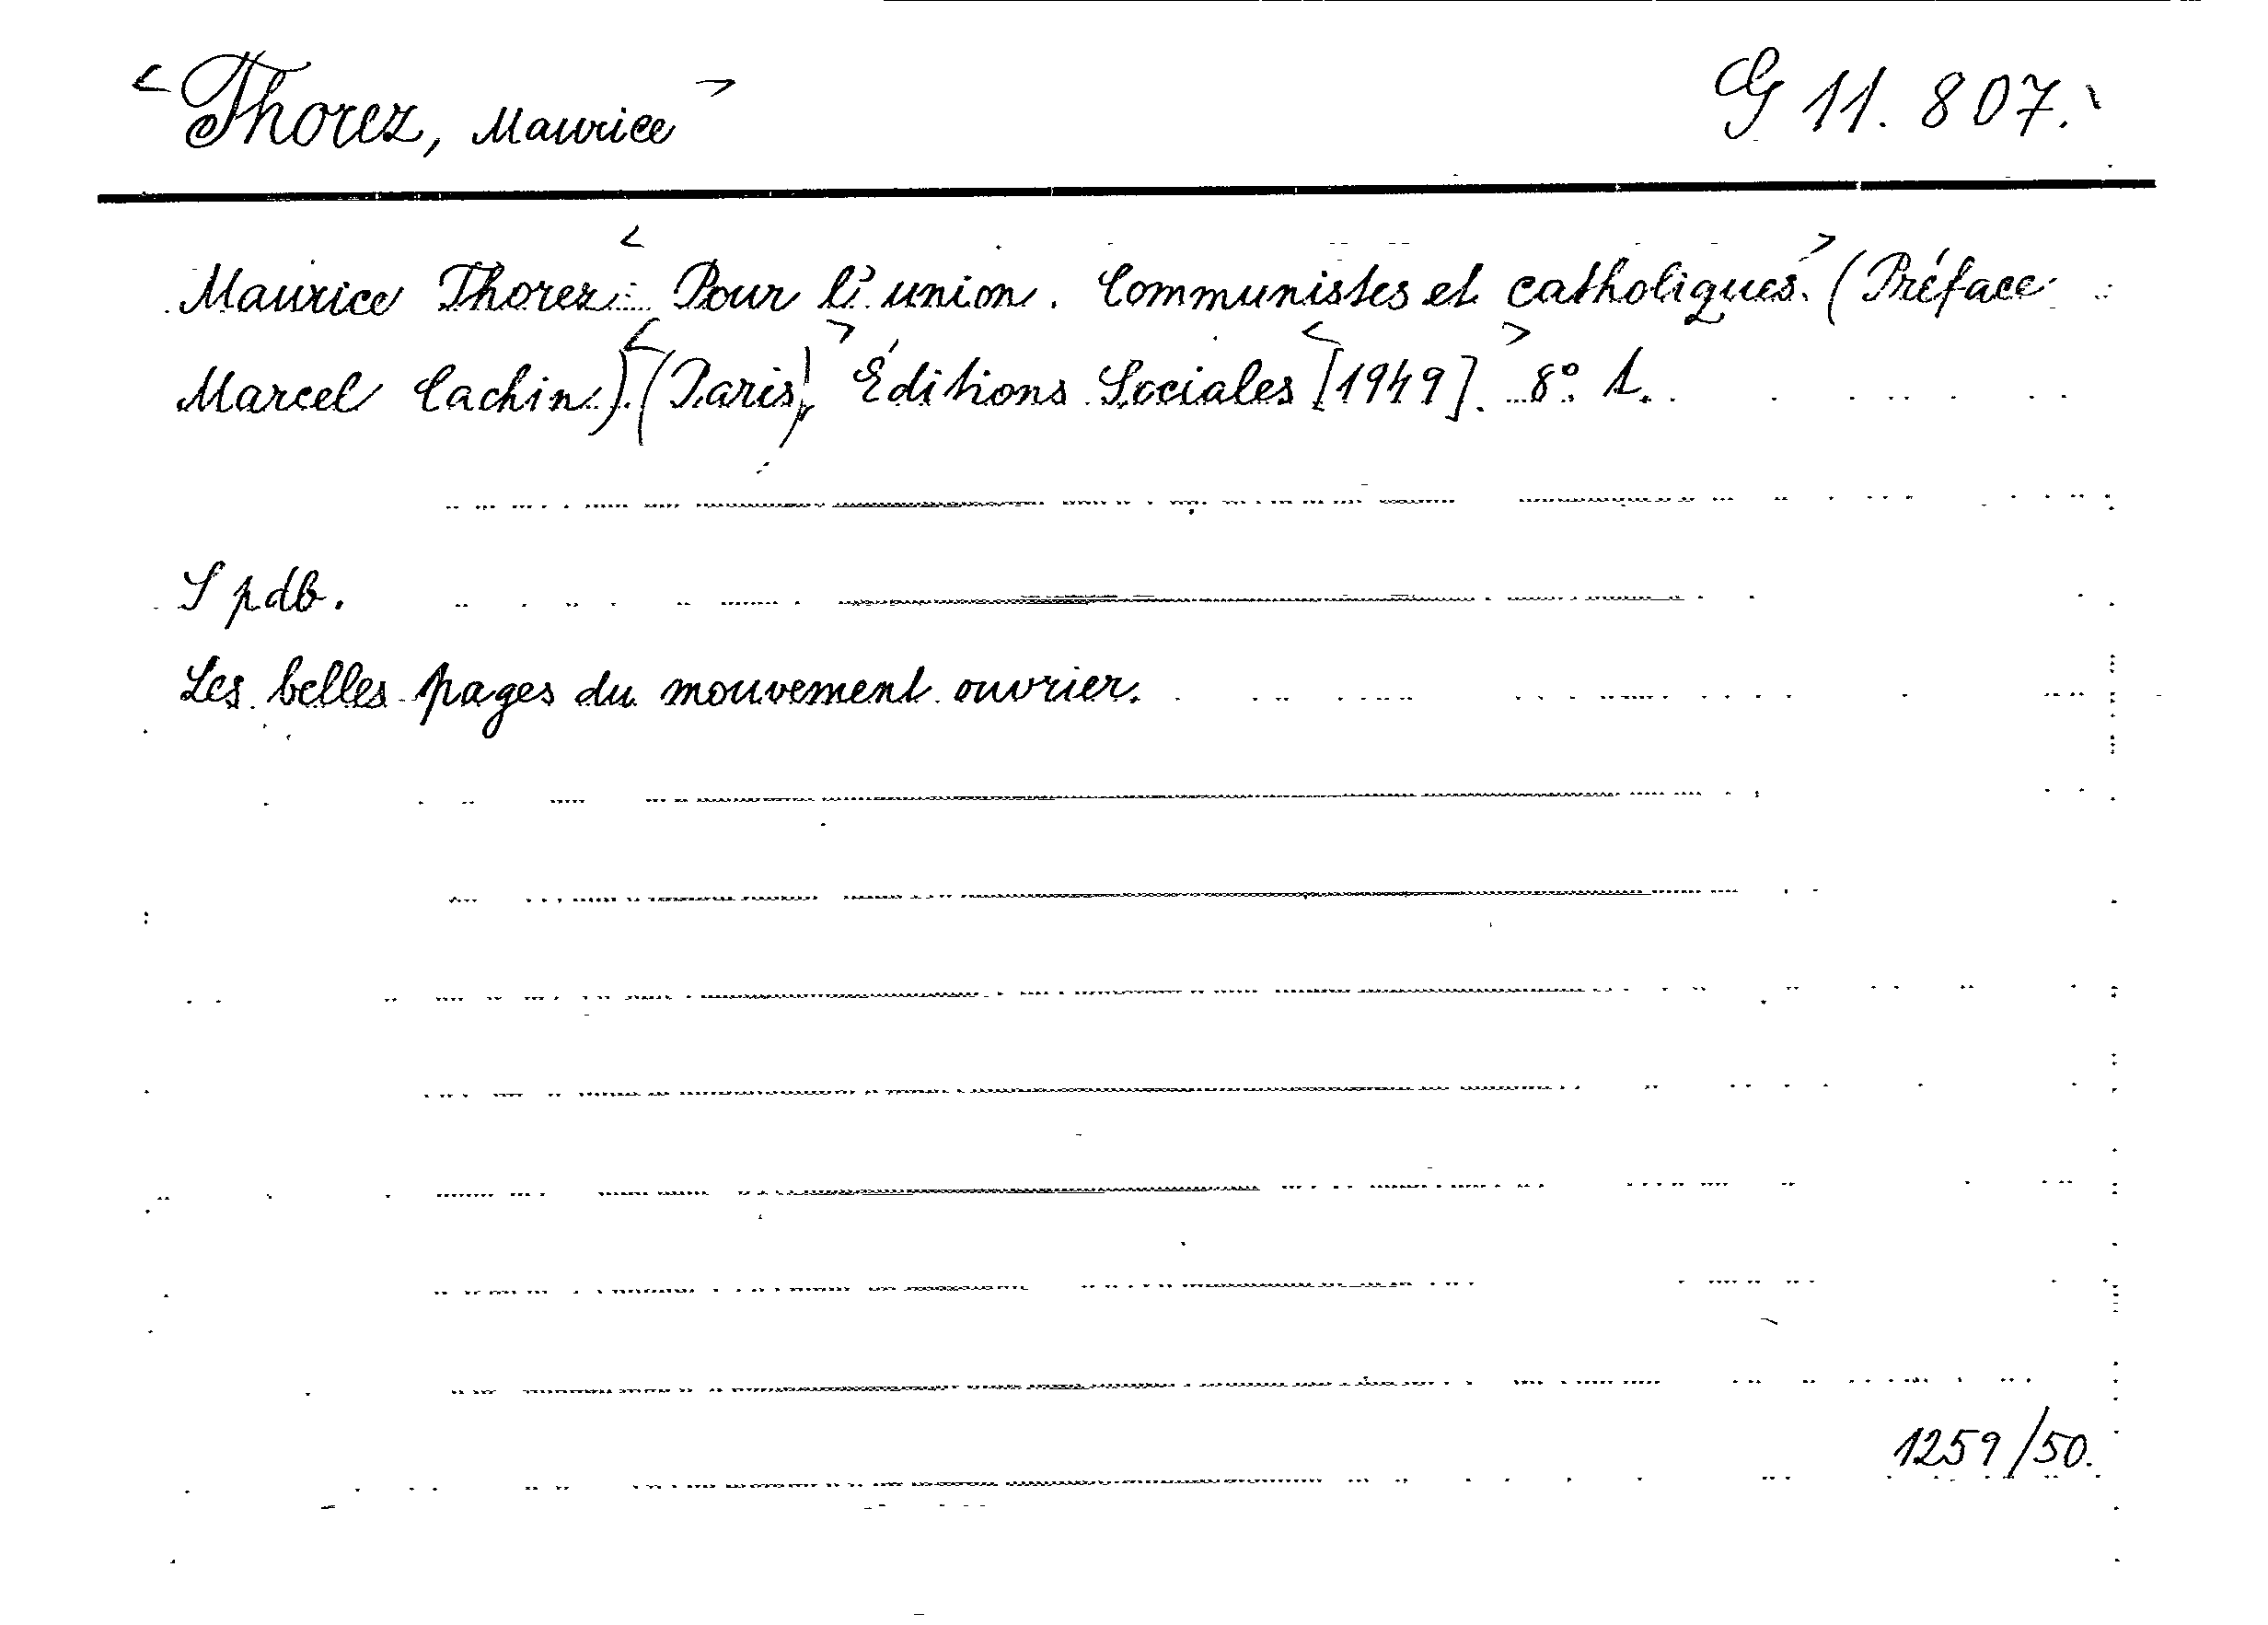 <Thorez, Maurice> G 11.807.
Maurice Thorez: <Pour l'union. Communistes et catholiques.> (Préface
Marcel Cachin). <(Paris,)> Éditions Sociales <[1949].> 8° 1.
S pdb.
Les belles pages du mouvement ouvrier.
1259/50.